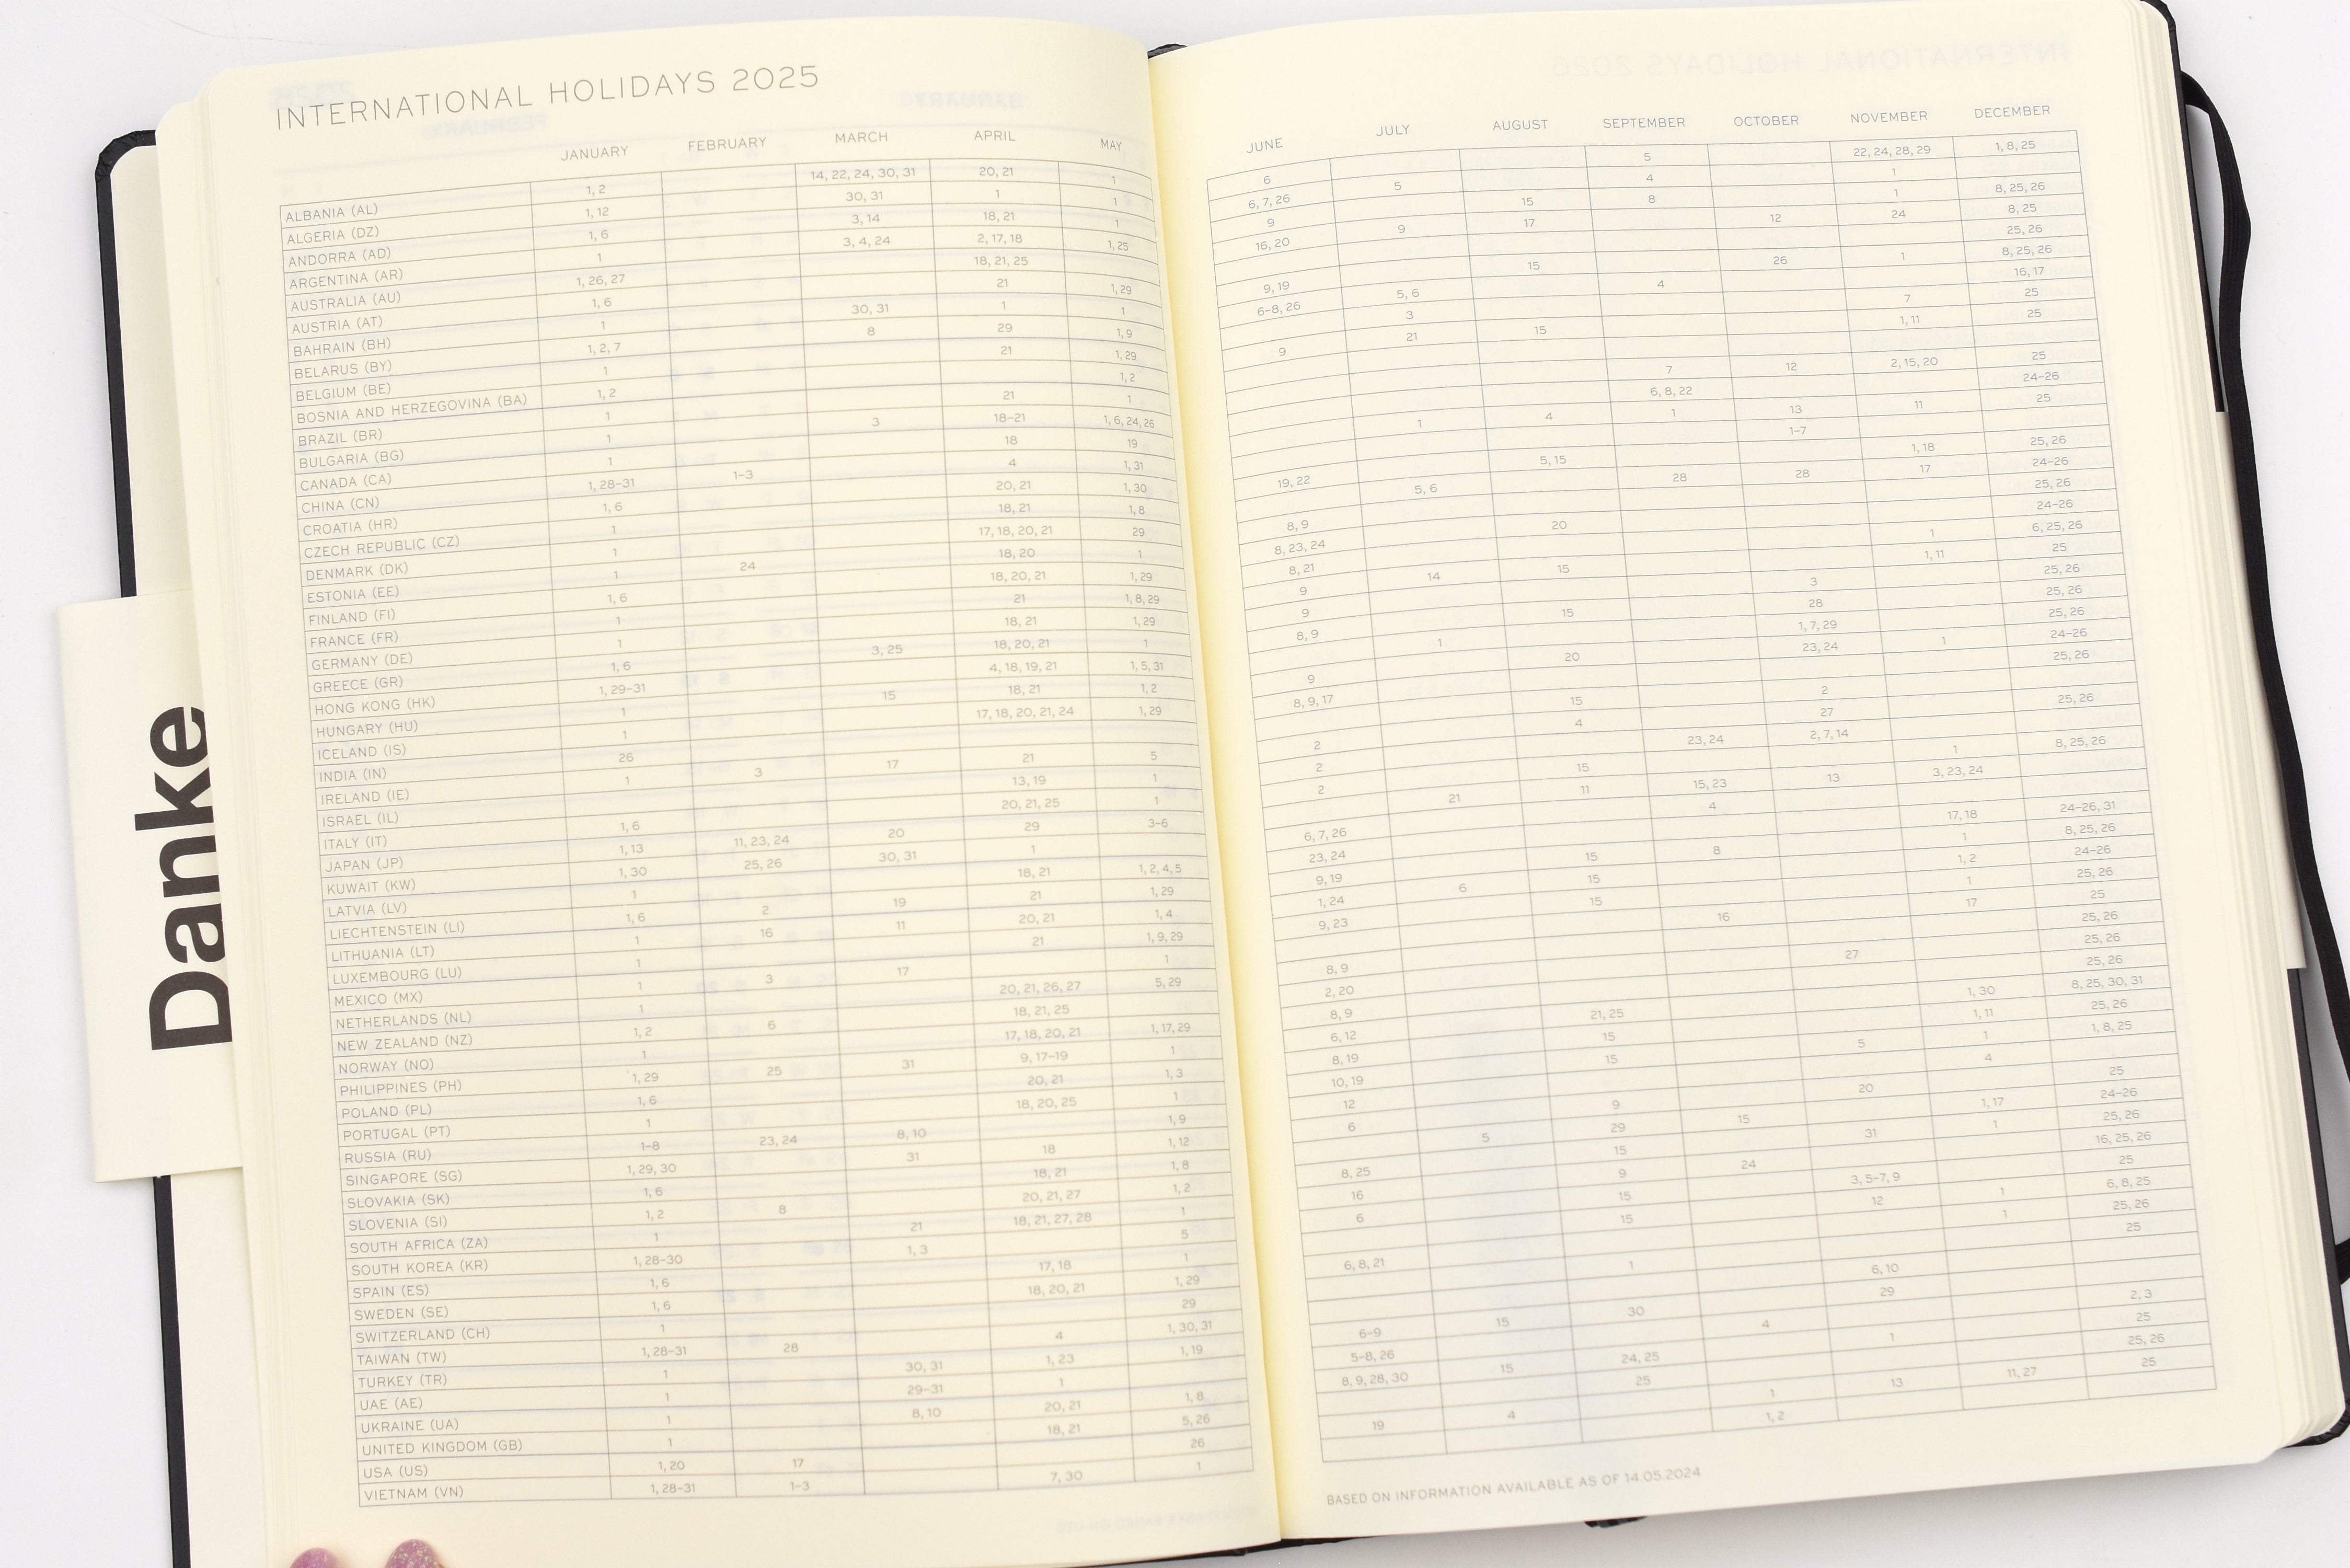 INTERNATIONAL HOLIDAYS 2025
JANUARY FEBRUARY MARCH APRIL MAY
ALBANIA (AL) 1, 2 14, 22, 24, 30, 31 20, 21 1
ALGERIA (DZ) 1, 12 30, 31 1 1
ANDORRA (AD) 1, 6 3, 14 18, 21 1
ARGENTINA (AR) 1 3, 4, 24 2, 17, 18 1, 25
AUSTRALIA (AU) 1, 26, 27 18, 21, 25
AUSTRIA (AT) 1, 6 21 1, 29
BAHRAIN (BH) 1 30, 31 1 1
BELARUS (BY) 1, 2, 7 8 29 1, 9
BELGIUM (BE) 1 21 1, 29
BOSNIA AND HERZEGOVINA (BA) 1, 2 1, 2
BRAZIL (BR) 1 21 1
BULGARIA (BG) 1 3 18–21 1, 6, 24, 26
CANADA (CA) 1 18 19
CHINA (CN) 1, 28–31 1–3 4 1, 31
CROATIA (HR) 1, 6 20, 21 1, 30
CZECH REPUBLIC (CZ) 1 18, 21 1, 8
DENMARK (DK) 1 17, 18, 20, 21 29
ESTONIA (EE) 1 24 18, 20 1
FINLAND (FI) 1, 6 18, 20, 21 1, 29
FRANCE (FR) 1 21 1, 8, 29
GERMANY (DE) 1 18, 21 1, 29
GREECE (GR) 1, 6 3, 25 18, 20, 21 1
HONG KONG (HK) 1, 29–31 4, 18, 19, 21 1, 5, 31
HUNGARY (HU) 1 15 18, 21 1, 2
ICELAND (IS) 1 17, 18, 20, 21, 24 1, 29
INDIA (IN) 26
IRELAND (IE) 1 3 17 21 5
ISRAEL (IL) 13, 19 1
ITALY (IT) 1, 6 20, 21, 25 1
JAPAN (JP) 1, 13 11, 23, 24 20 29 3–6
KUWAIT (KW) 1, 30 25, 26 30, 31 1
LATVIA (LV) 1 18, 21 1, 2, 4, 5
LIECHTENSTEIN (LI) 1, 6 2 19 21 1, 29
LITHUANIA (LT) 1 16 11 20, 21 1, 4
LUXEMBOURG (LU) 1 21 1, 9, 29
MEXICO (MX) 1 3 17 1
NETHERLANDS (NL) 1 20, 21, 26, 27 5, 29
NEW ZEALAND (NZ) 1, 2 6 18, 21, 25
NORWAY (NO) 1 17, 18, 20, 21 1, 17, 29
PHILIPPINES (PH) 1, 29 25 31 9, 17–19 1
POLAND (PL) 1, 6 20, 21 1, 3
PORTUGAL (PT) 1 18, 20, 25 1
RUSSIA (RU) 1–8 23, 24 8, 10 1, 9
SINGAPORE (SG) 1, 29, 30 31 18 1, 12
SLOVAKIA (SK) 1, 6 18, 21 1, 8
SLOVENIA (SI) 1, 2 8 20, 21, 27 1, 2
SOUTH AFRICA (ZA) 1 21 18, 21, 27, 28 1
SOUTH KOREA (KR) 1, 28–30 1, 3 5
SPAIN (ES) 1, 6 17, 18 1
SWEDEN (SE) 1, 6 18, 20, 21 1, 29
SWITZERLAND (CH) 1 29
TAIWAN (TW) 1, 28–31 28 4 1, 30, 31
TURKEY (TR) 1 30, 31 1, 23 1, 19
UAE (AE) 1 29–31 1
UKRAINE (UA) 1 8, 10 20, 21 1, 8
UNITED KINGDOM (GB) 1 18, 21 5, 26
USA (US) 1, 20 17 26
VIETNAM (VN) 1, 28–31 1–3 7, 30 1
JUNE JULY AUGUST SEPTEMBER OCTOBER NOVEMBER DECEMBER
6 5 22, 24, 28, 29 1, 8, 25
6, 7, 26 5 4 1
9 15 8 1 8, 25, 26
16, 20 9 17 12 24 8, 25
25, 26
9, 19 15 26 1 8, 25, 26
6–8, 26 5, 6 4 16, 17
3 7 25
9 21 15 1, 11 25
7 12 2, 15, 20 25
6, 8, 22 24–26
1 4 1 13 11 25
1–7
19, 22 5, 15 1, 18 25, 26
5, 6 28 28 17 24–26
8, 9 25, 26
8, 23, 24 20 24–26
8, 21 1 6, 25, 26
9 14 15 1, 11 25
9 3 25, 26
8, 9 15 28 25, 26
1 1, 7, 29 25, 26
9 20 23, 24 1 24–26
8, 9, 17 25, 26
15 2
2 4 27 25, 26
2 23, 24 2, 7, 14
2 15 1 8, 25, 26
21 11 15, 23 13 3, 23, 24
6, 7, 26 4
23, 24 17, 18 24–26, 31
9, 19 15 8 1 8, 25, 26
1, 24 6 15 1, 2 24–26
9, 23 15 1 25, 26
16 17 25
8, 9 25, 26
2, 20 27 25, 26
8, 9 25, 26
6, 12 21, 25 1, 30 8, 25, 30, 31
8, 19 15 1, 11 25, 26
10, 19 15 5 1 1, 8, 25
12 4
6 9 20 25
5 29 15 1, 17 24–26
8, 25 15 31 1 25, 26
16 9 24 16, 25, 26
6 15 3, 5–7, 9 25
15 12 1 6, 8, 25
6, 8, 21 1 25, 26
1 25
6, 10
6–9 15 30 29
5–8, 26 4 2, 3
8, 9, 28, 30 15 24, 25 1 25
25 25, 26
19 4 1 13 11, 27 25
1, 2
BASED ON INFORMATION AVAILABLE AS OF 14.05.2024
Danke